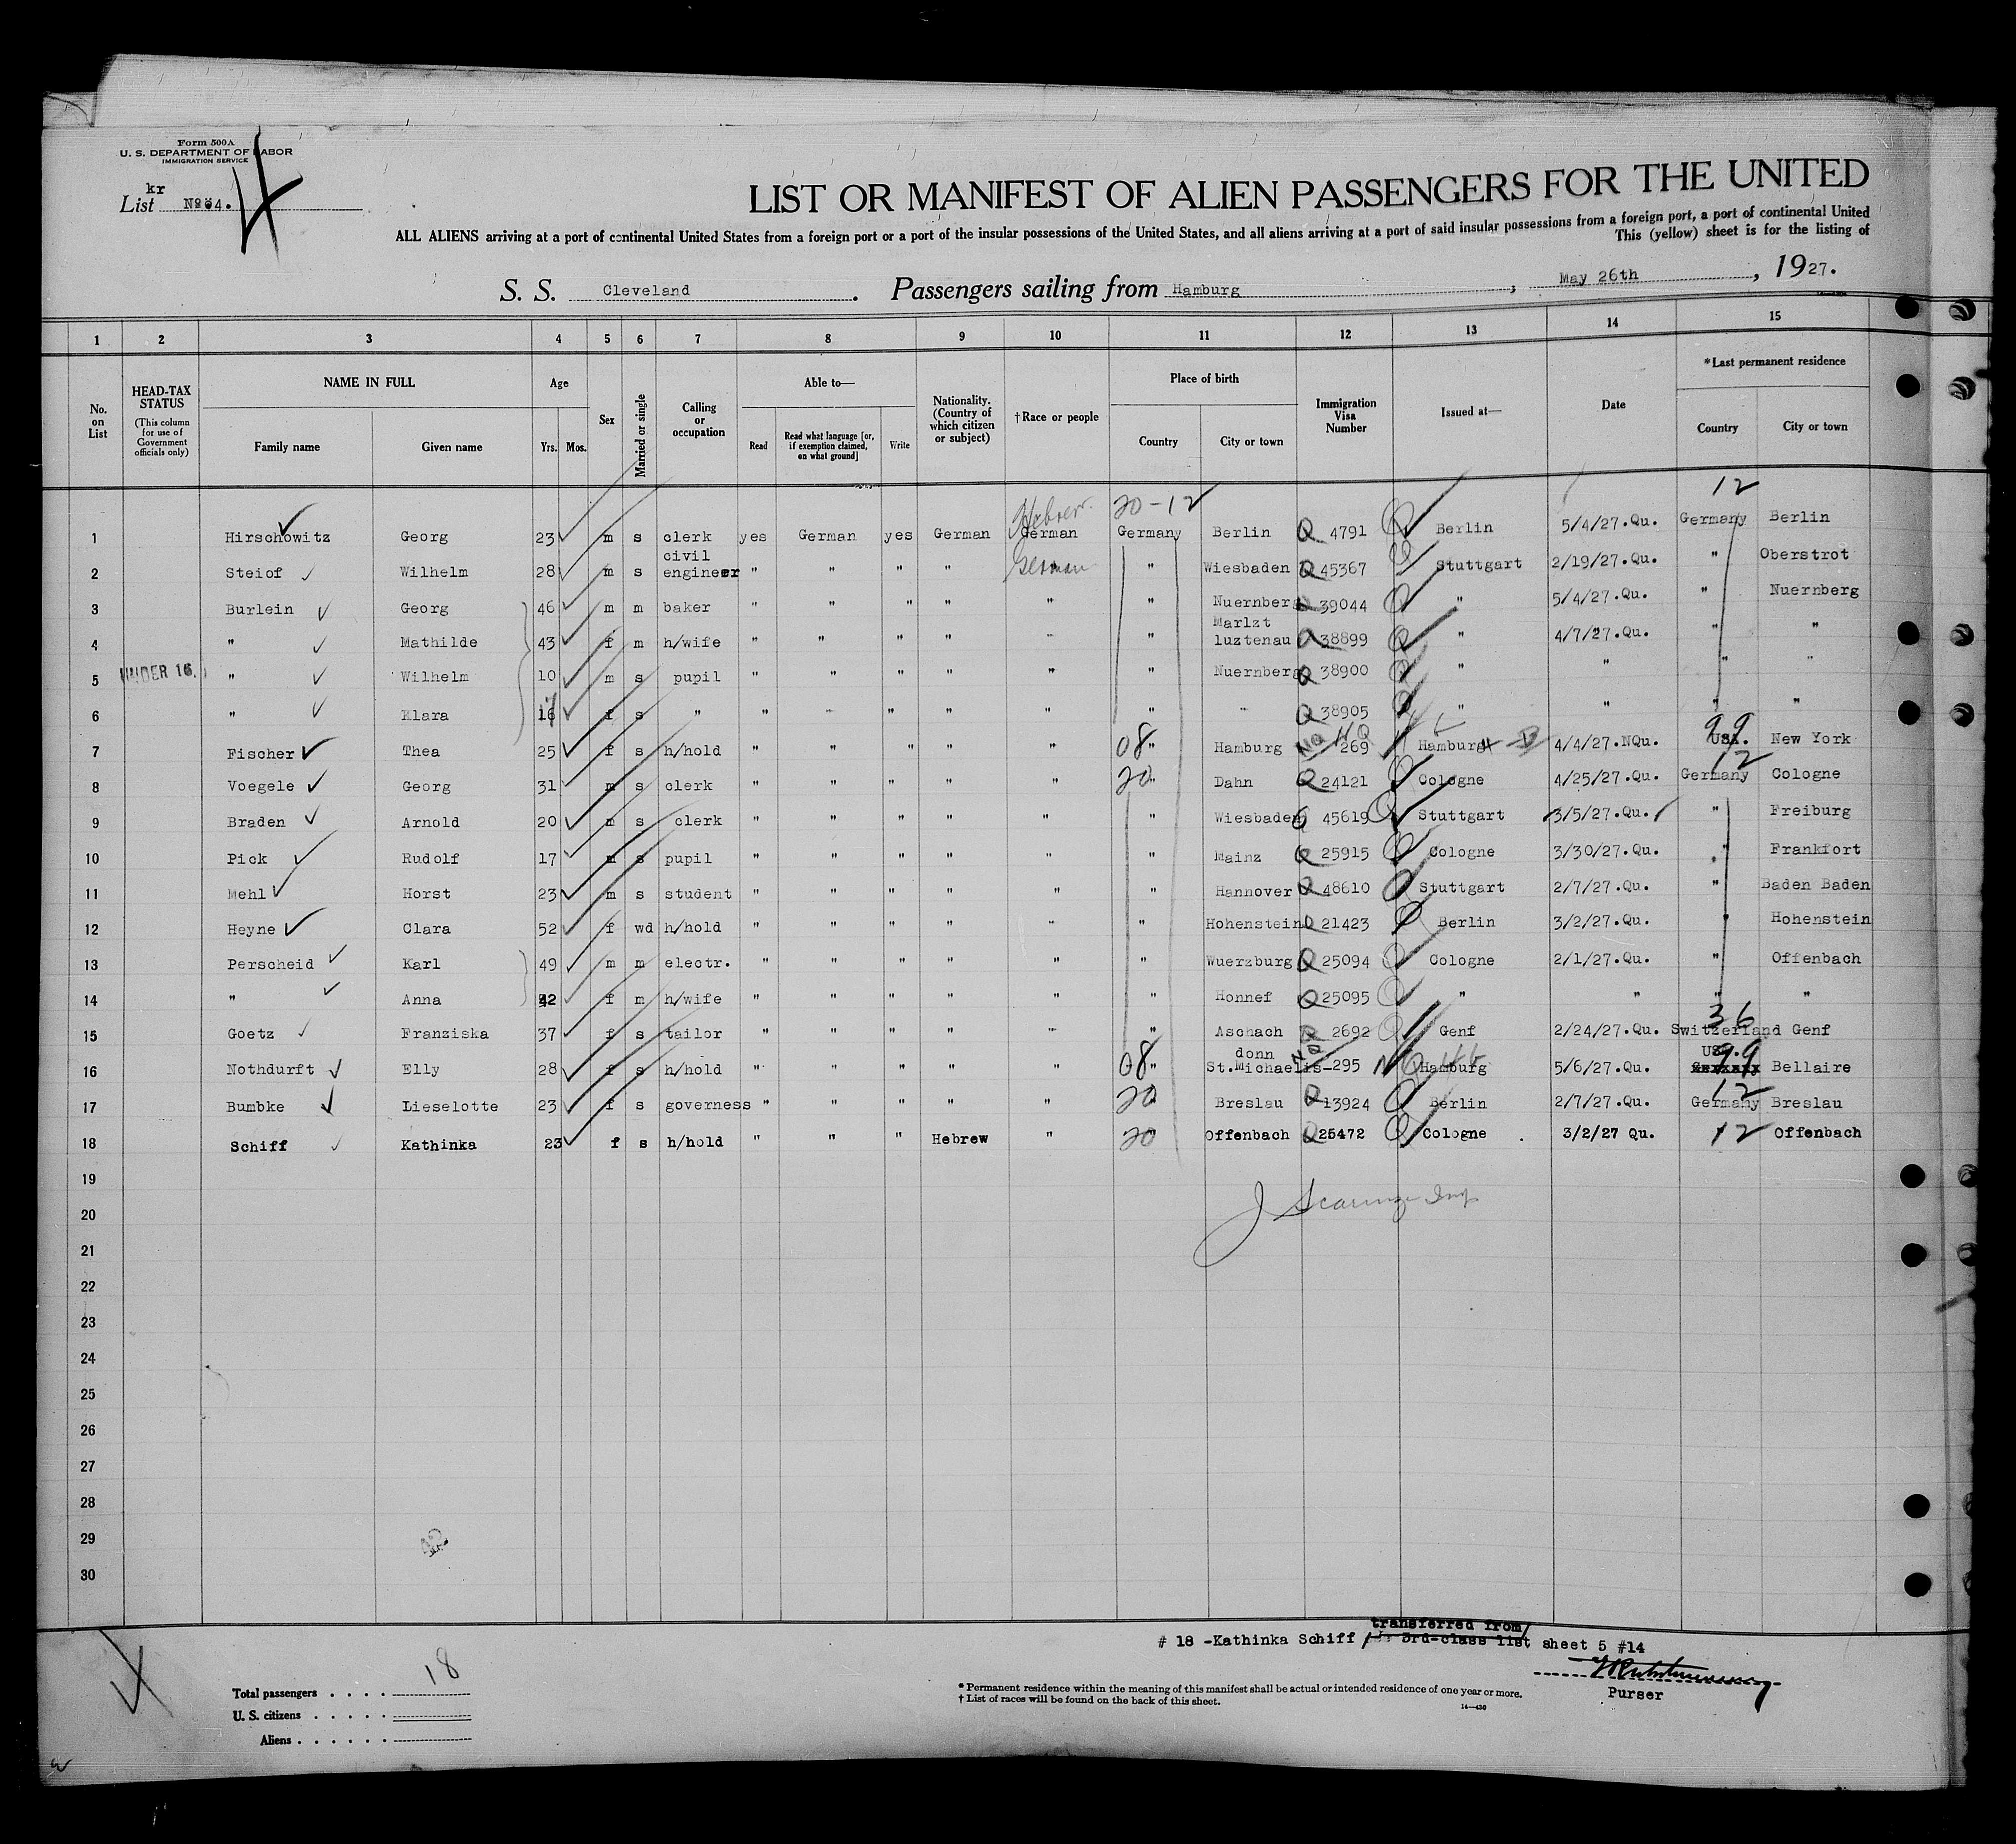 Form 500A
U. S. DEPARTMENT OF LABOR
IMMIGRATION SERVICE
kr
List No. 4. 4
LIST OR MANIFEST OF ALIEN PASSENGERS FOR THE UNITED
ALL ALIENS arriving at a port of continental United States from a foreign port or a port of the insular possessions of the United States, and all aliens arriving at a port of said insular possessions from a foreign port, a port of continental United
This (yellow) sheet is for the listing of
S. S. Cleveland. Passengers sailing from Hamburg, May 26th, 1927.
1 2 3 4 5 6 7 8 9 10 11 12 13 14 15
No. on List
HEAD-TAX STATUS (This column for use of Government officials only)
NAME IN FULL Family name Given name
Age Yrs. Mos.
Sex
Married or single
Calling or occupation
Able to— Read Read what language [or, if exemption claimed, on what ground] Write
Nationality. (Country of which citizen or subject)
†Race or people
Place of birth Country City or town
Immigration Visa Number
Issued at—
Date
*Last permanent residence Country City or town
Hebrew 20-12 12
1 Hirschowitz Georg 23 m s clerk yes German yes German German Germany Berlin Q 4791 Berlin 5/4/27.Qu. Germany Berlin
2 Steiof Wilhelm 28 m s civil engineer " " " " German " Wiesbaden Q 45367 Stuttgart 2/19/27.Qu. " Oberstrot
3 Burlein Georg 46 m m baker " " " " " " Nuernberg Q 39044 " 5/4/27.Qu. " Nuernberg
4 " Mathilde 43 f m h/wife " " " " " " Marlzt luztenau Q 38899 " 4/7/27.Qu. " "
5 UNDER 16. " Wilhelm 10 m s pupil " " " " " " Nuernberg Q 38900 " " " "
6 " Klara 16 f s " " " " " " " " Q 38905 " " " "
7 Fischer Thea 25 f s h/hold " " " " " 08 " Hamburg NQ 269 Hamburg 4/4/27.NQu. 99 USA. New York
8 Voegele Georg 31 m s clerk " " " " " 20 " Dahn Q 24121 Cologne 4/25/27.Qu. 12 Germany Cologne
9 Braden Arnold 20 m s clerk " " " " " " Wiesbaden Q 45619 Stuttgart 3/5/27.Qu. " Freiburg
10 Pick Rudolf 17 m s pupil " " " " " " Mainz Q 25915 Cologne 3/30/27.Qu. " Frankfort
11 Mehl Horst 23 m s student " " " " " " Hannover Q 48610 Stuttgart 2/7/27.Qu. " Baden Baden
12 Heyne Clara 52 f wd h/hold " " " " " " Hohenstein Q 21423 Berlin 3/2/27.Qu. " Hohenstein
13 Perscheid Karl 49 m m electr. " " " " " " Wuerzburg Q 25094 Cologne 2/1/27.Qu. " Offenbach
14 " Anna 42 f m h/wife " " " " " " Honnef Q 25095 " " " "
15 Goetz Franziska 37 f s tailor " " " " " " Aschach 2692 Genf 2/24/27.Qu. 36 Switzerland Genf
16 Nothdurft Elly 28 f s h/hold " " " " " 08 " donn St.Michaelis 295 Hamburg 5/6/27.Qu. USA. 99 Bellaire
17 Bumbke Lieselotte 23 f s governess " " " " " 20 " Breslau Q 13924 Berlin 2/7/27.Qu. 12 Germany Breslau
18 Schiff Kathinka 23 f s h/hold " " " Hebrew " 20 " Offenbach Q 25472 Cologne 3/2/27 Qu. 12 Offenbach
19
20
21
22
23
24
25
26
27
28
29
30
transferred from
# 18 -Kathinka Schiff 3rd-class list sheet 5 #14
Purser
Total passengers . . . . 18
U. S. citizens . . . . .
Aliens . . . . . .
* Permanent residence within the meaning of this manifest shall be actual or intended residence of one year or more.
† List of races will be found on the back of this sheet.
14—430